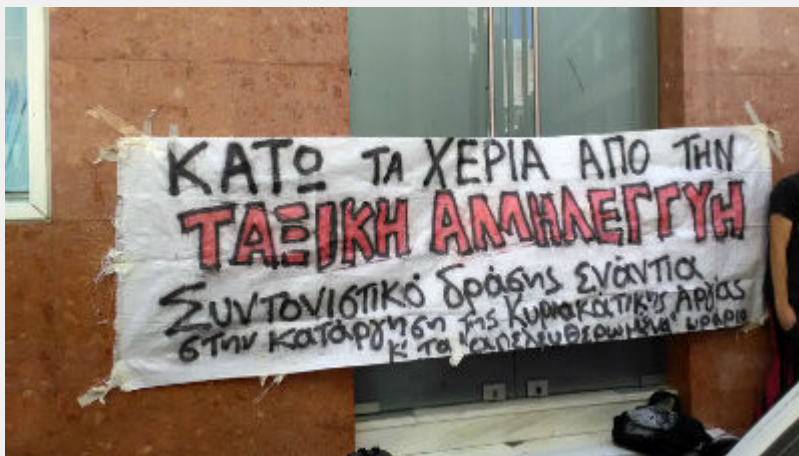 ΚΑΤΩ ΤΑ ΧΕΡΙΑ ΑΠΟ ΤΗΝ
ΤΑΞΙΚΗ ΑΛΛΗΛΕΓΓΥΗ
Συντονιστικό δράσης ενάντια
στην κατάργηση της Κυριακάτικης Αργίας
κ' τα "απελευθερωμένα" ωράρια